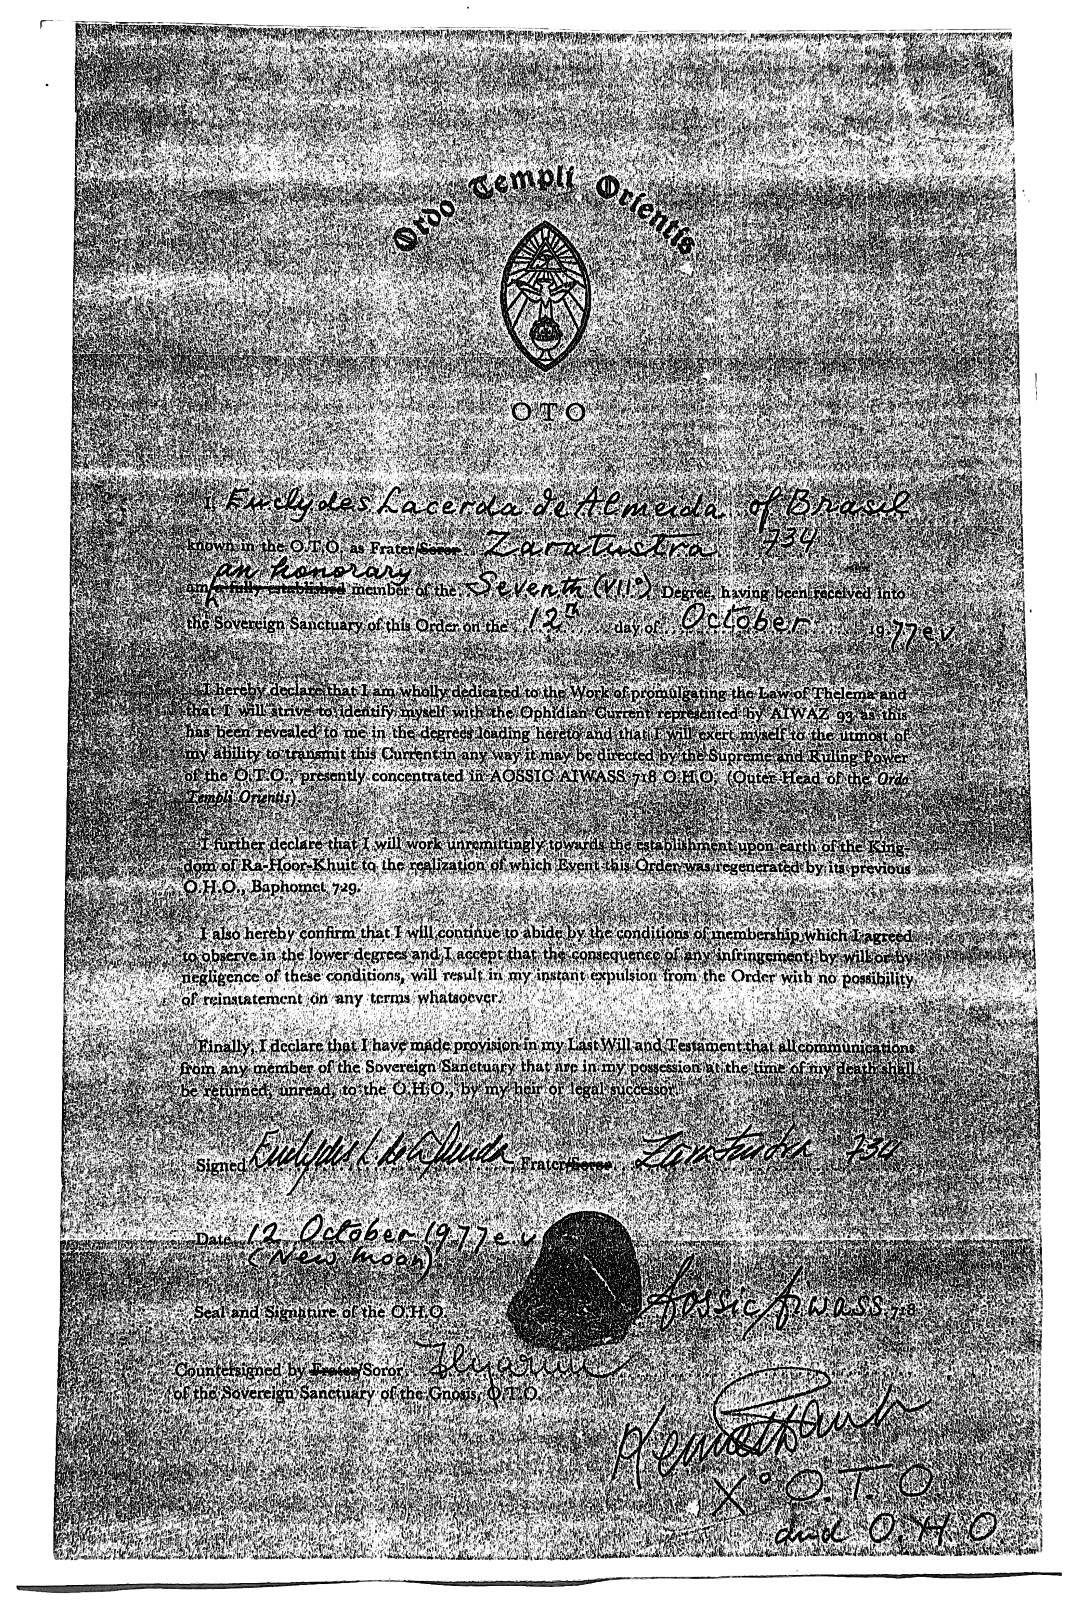 Ordo Templi Orientis
OTO
I, Euclydes Lacerda de Almeida of Brasil
known in the O.T.O. as Frater/Soror Zaratustra 734
an honorary
am a fully established member of the Seventh (VII°) Degree, having been received into
the Sovereign Sanctuary of this Order on the 12th day of October 1977 ev
I hereby declare that I am wholly dedicated to the Work of promulgating the Law of Thelema and
that I will strive to identify myself with the Ophidian Current represented by AIWAZ 93 as this
has been revealed to me in the degrees leading hereto and that I will exert myself to the utmost of
my ability to transmit this Current in any way it may be directed by the Supreme and Ruling Power
of the O.T.O., presently concentrated in AOSSIC AIWASS 718 O.H.O. (Outer Head of the Ordo
Templi Orientis).
I further declare that I will work unremittingly towards the establishment upon earth of the King-
dom of Ra-Hoor-Khuit to the realization of which Event this Order was regenerated by its previous
O.H.O., Baphomet 729.
I also hereby confirm that I will continue to abide by the conditions of membership which I agreed
to observe in the lower degrees and I accept that the consequence of any infringement, by will or by
negligence of these conditions, will result in my instant expulsion from the Order with no possibility
of reinstatement on any terms whatsoever.
Finally, I declare that I have made provision in my Last Will and Testament that all communications
from any member of the Sovereign Sanctuary that are in my possession at the time of my death shall
be returned, unread, to the O.H.O., by my heir or legal successor.
Signed Euclydes L. de Almeida Frater/Soror Zaratustra 734
Date 12 October 1977 e v
(New Moon)
Seal and Signature of the O.H.O. Aossic Aiwass 718
Countersigned by Frater/Soror
of the Sovereign Sanctuary of the Gnosis, O.T.O.
Kenneth Grant
X° O.T.O.
and O.H.O